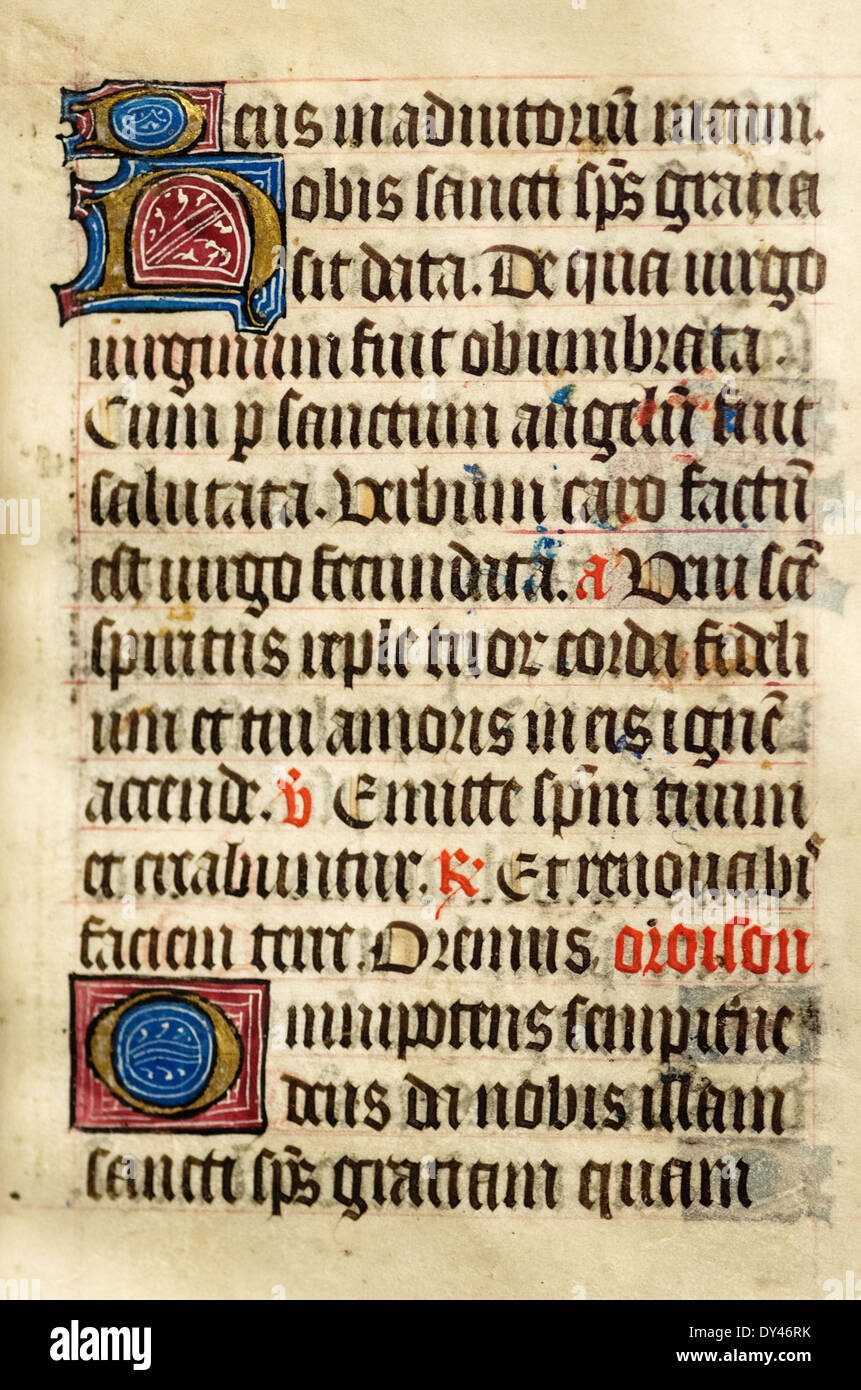 Deus in adiutoriū meum.
Nobis sancti sp̄s gratia
sit data. De qua uirgo
uirginum fuit obumbrata.
Cum p sanctum angelū fuit
salutata. Verbum caro factū
est uirgo fecundata. a Veni scē
spiritus reple tuor corda fideli
um et tui amoris in eis ignē
accende. v̄ Emitte sp̄m tuum
et creabuntur. R̷ Et renouabis
faciem terre. Oremus. oroison
Omnipotens sempitne
deus da nobis illam
sancti sp̄s gratiam quam
alamy
Image ID: DY46RK
www.alamy.com